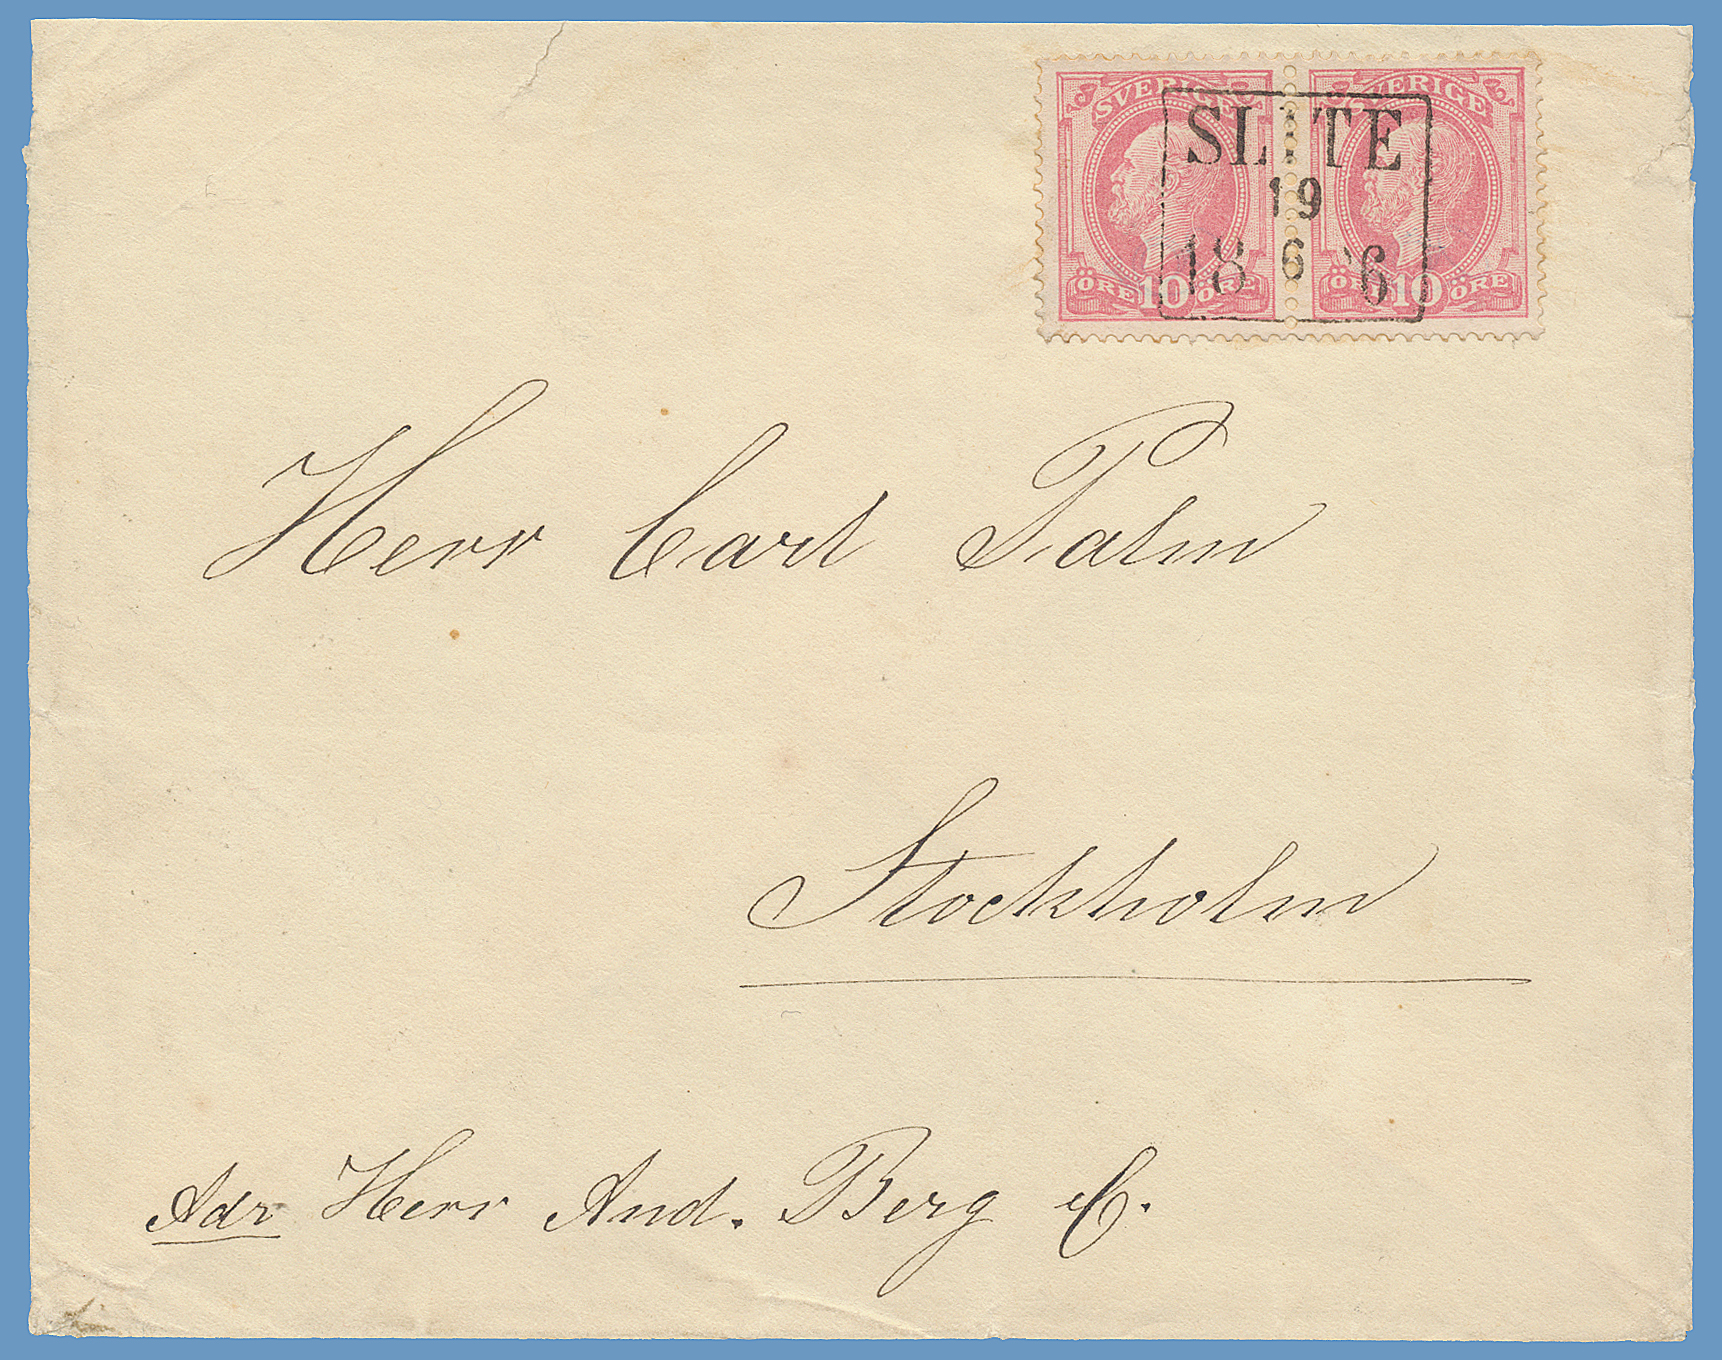 SVERIGE SVERIGE
SLITE
19
18 6 6
ÖRE 10 ÖRE ÖRE 10 ÖRE
Herr Carl Palm
Stockholm
Adr Herr And. Berg C.